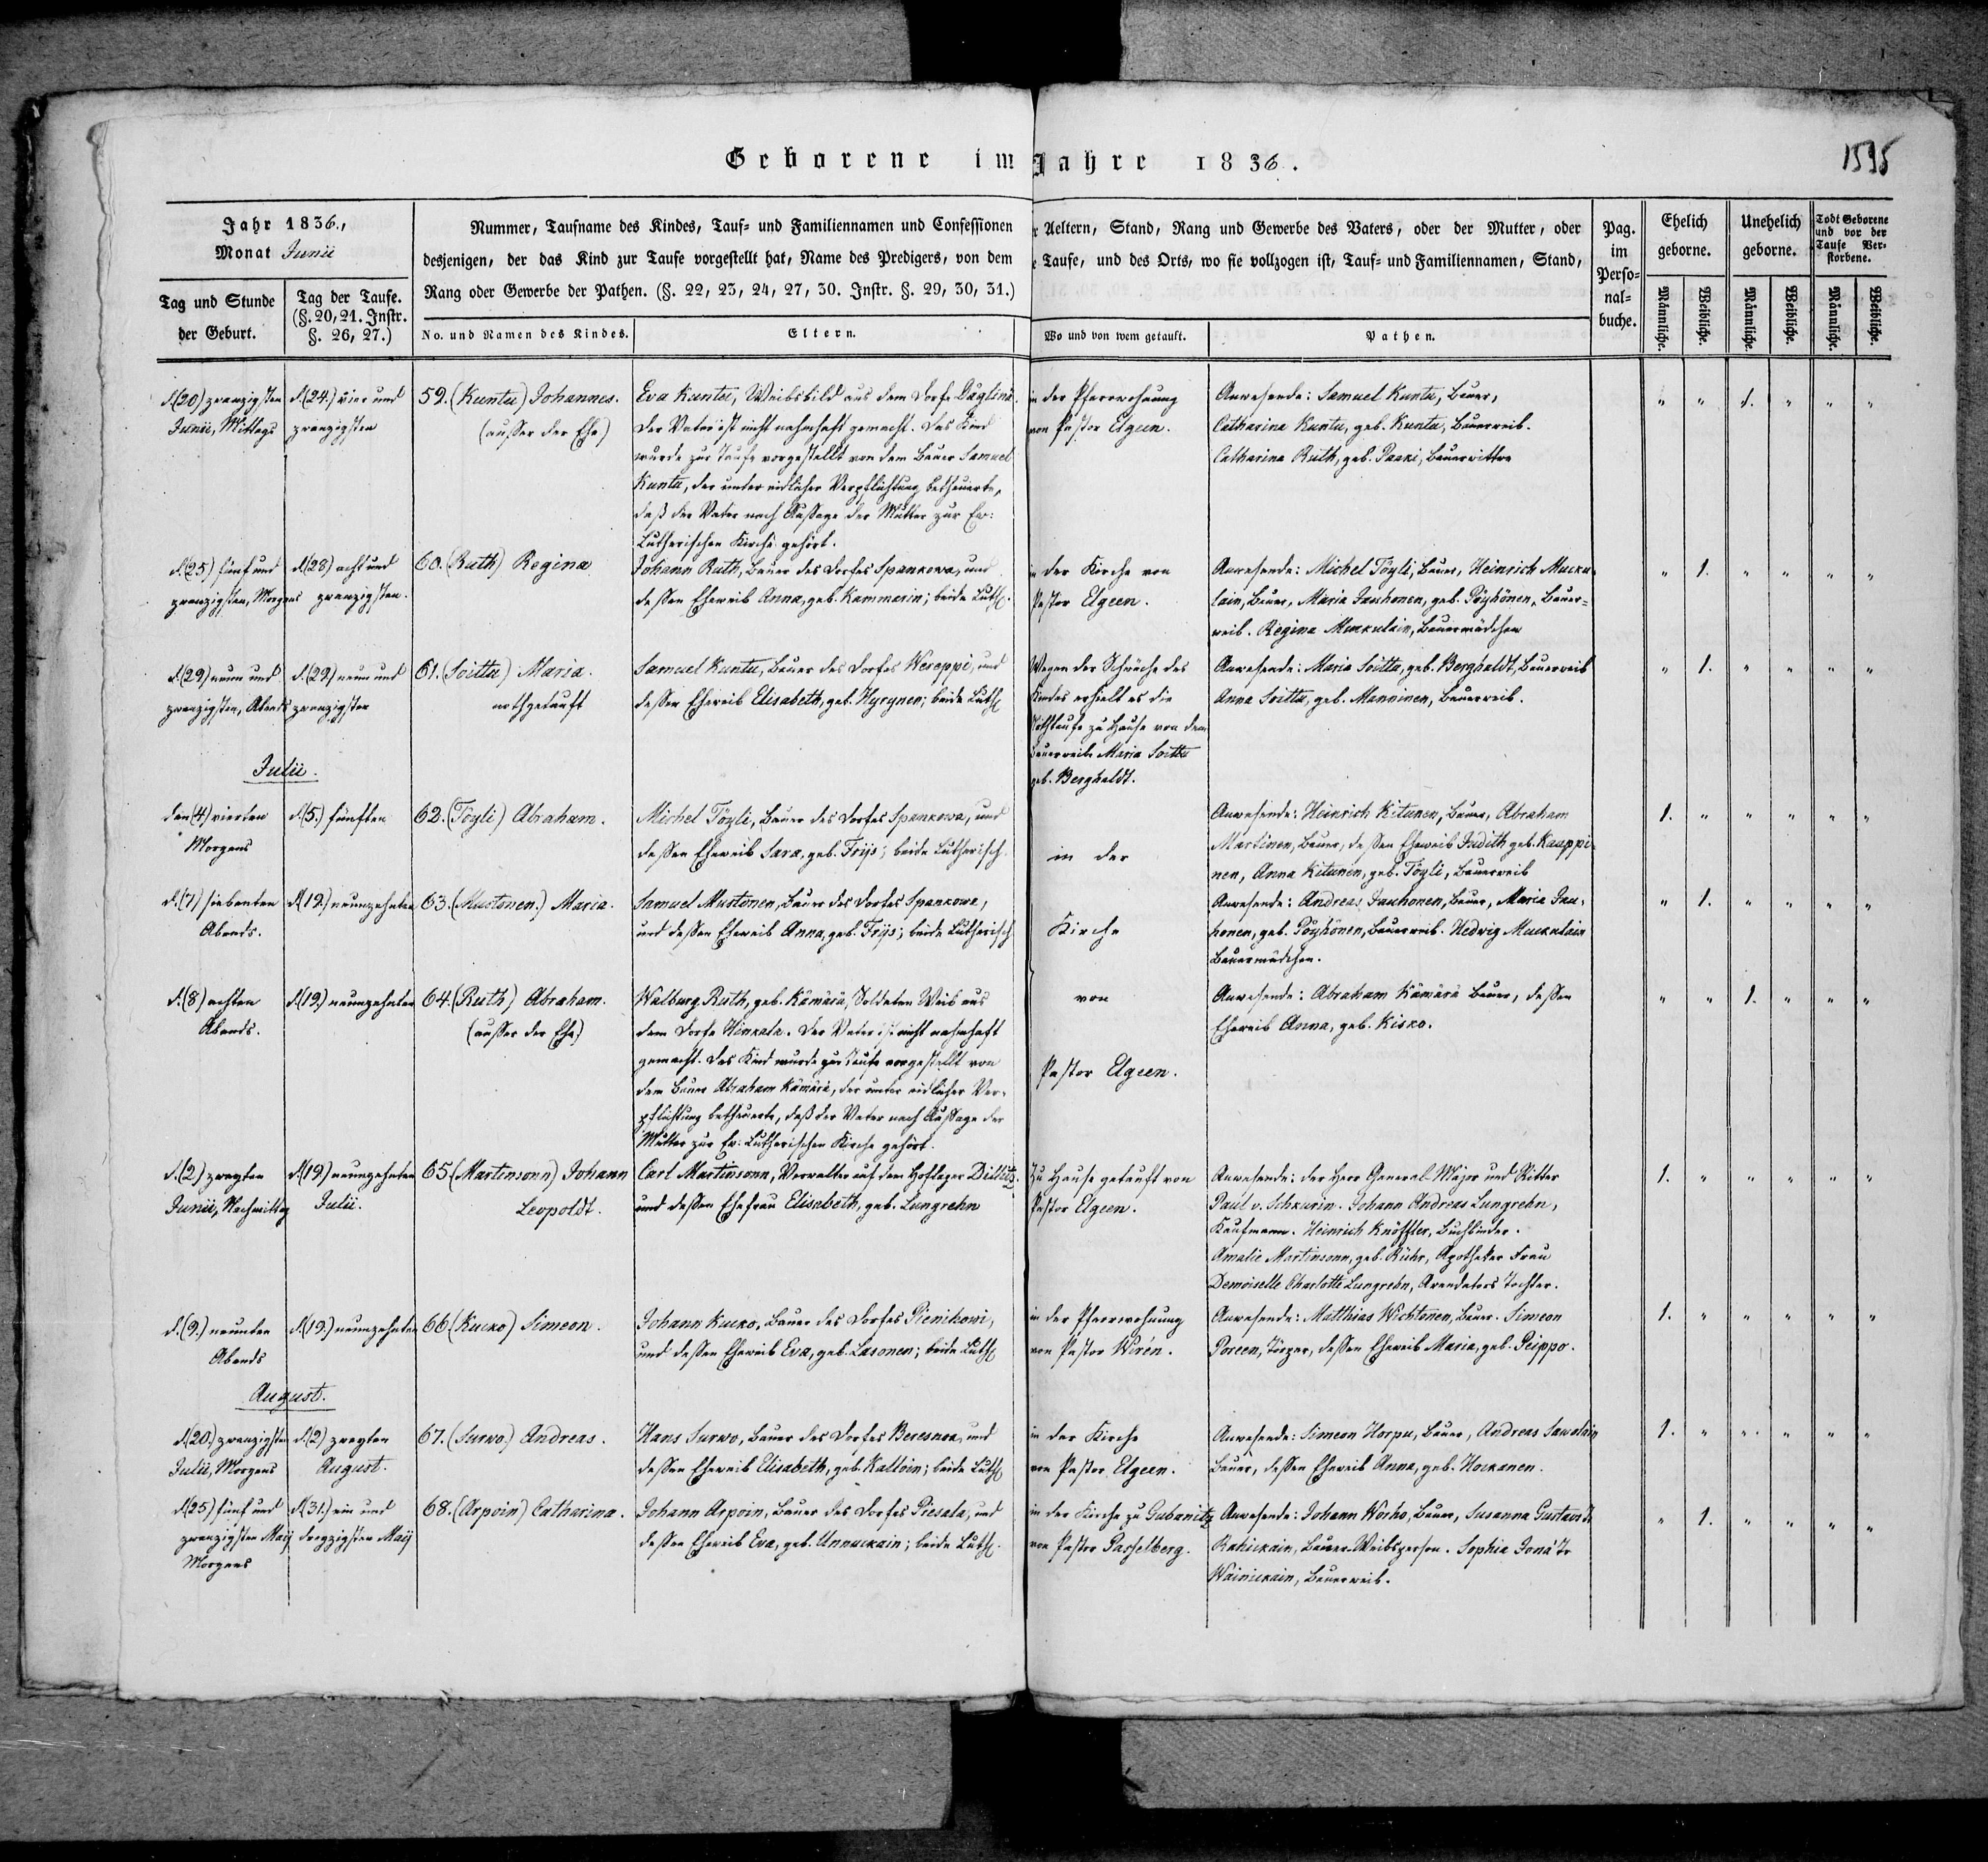 Geborene im Jahre 1836.
1595
Jahr 1836.,
Monat Junii
Tag und Stunde der Geburt.
Tag der Taufe. (§. 20, 21. Instr. §. 26, 27.)
Nummer, Taufname des Kindes, Tauf- und Familiennamen und Confessionen
desjenigen, der das Kind zur Taufe vorgestellt hat, Name des Predigers, von dem
Rang oder Gewerbe der Pathen. (§. 22, 23, 24, 27, 30. Instr. §. 29, 30, 31.)
No. und Namen des Kindes.
Eltern.
r Aeltern, Stand, Rang und Gewerbe des Vaters, oder der Mutter, oder
e Taufe, und des Orts, wo sie vollzogen ist, Tauf- und Familiennamen, Stand,
Wo und von wem getauft.
Pathen.
Pag. im Perso- nal- buche.
Ehelich geborne.
Unehelich geborne.
Todt Geborene und vor der Taufe Ver- storbene.
Männliche. Weibliche. Männliche. Weibliche. Männliche. Weibliche.
d. (20) zwanzigsten
Junii, Mittags
d. (24.) vier und
zwanzigsten
59. (Kuntu) Johannes.
(ausser der Ehe)
Eva Kuntu, Weibsbild aus dem Dorfe Däglinä.
Der Vater ist nicht nahmhaft gemacht. Das Kind
wurde zur Taufe vorgestellt von dem Bauer Samuel
Kuntu, der unter eidlicher Verpflichtung betheuerte,
daß der Vater nach Aussage der Mutter zur Ev:
Lutherischen Kirche gehört.
in der Pfarrwohnung
von Pastor Elgeen.
Anwesende: Samuel Kuntu, Bauer,
Catharina Kuntu, geb. Kuntu, Bauerweib.
Catharina Ruth, geb. Paaki, Bauerwittwe
" " 1. " " "
d. (25) fünf und
zwanzigsten, Morgens
d. (28) acht und
zwanzigsten.
60. (Ruth) Regina
Johann Ruth, Bauer des Dorfes Spankowa, und
dessen Eheweib Anna, geb. Kammarin; beide Luth.
in der Kirche von
Pastor Elgeen.
Anwesende: Michel Töyli, Bauer, Heinrich Mucku-
lain, Bauer, Maria Jauhonen, geb. Pöyhönen, Bauer=
weib. Regina Muckulain, Bauermädchen
" 1. " " " "
d. (29) neun und
zwanzigsten, Abends
d. (29) neun und
zwanzigsten
61. (Soittu) Maria.
nothgetauft
Samuel Kuntu, Bauer des Dorfes Weroppi, und
dessen Eheweib Elisabeth, geb. Hyrynen; beide Luth
Wegen der Schwäche des
Kindes erhielt es die
Nothtaufe zu Hause von dem
Bauerweibe Maria Soittu
geb. Berghaldt.
Anwesende: Maria Soittu, geb. Berghaldt, Bauerweib
Anna Soittu, geb. Manninen, Bauerweib.
" 1. " " " "
Julii.
den (4) vierten
Morgens
d. (5.) fünften
62. (Töyli) Abraham.
Michel Töyli, Bauer des Dorfes Spankowa, und
dessen Eheweib Sara, geb. Frijs; beide Lutherisch.
in der
Anwesende: Heinrich Kitunen, Bauer, Abraham
Martinen, Bauer, dessen Eheweib Judith geb. Kauppi
nen, Anna Kitunen, geb. Töyli, Bauerweib
1. " " " " "
d. (7) siebenten
Abends.
d. (19.) neunzehnten
63. (Mustonen.) Maria.
Samuel Mustonen, Bauer des Dorfes Spankowa,
und dessen Eheweib Anna, geb. Frijs; beide Lutherisch
Kirche
Anwesende: Andreas Jauhonen, Bauer, Maria Jau-
honen, geb. Pöyhönen, Bauerweib. Hedwig Muckulain
Bauermädchen.
" 1. " " " "
d. (8) achten
Abends.
d. (19.) neunzehnten
64. (Ruth) Abraham.
(ausser der Ehe)
Walburg Ruth, geb. Kämärä, Soldaten Weib aus
dem Dorfe Hinkala. Der Vater ist nicht nahmhaft
gemacht. Das Kind wurde zur Taufe vorgestellt von
dem Bauer Abraham Kämärä, der unter eidlicher Ver-
pflichtung betheuerte, daß der Vater nach Aussage der
Mutter zur Ev: Lutherischen Kirche gehört.
von
Pastor Elgeen.
Anwesende: Abraham Kämärä Bauer, dessen
Eheweib Anna, geb. Kisko.
" " 1. " " "
d. (2) zweyten
Junii, Nachmittag
d. (19) neunzehnten
Julii.
65 (Martinsonn) Johann
Leopoldt.
Carl Martinsonn, Verwalter auf dem Hoflager Dillitz.
und dessen Ehefrau Elisabeth, geb. Lungrehn
Zu Hause getauft von
Pastor Elgeen.
Anwesende: der Herr General Major und Ritter
Paul v. Schkurin. Johann Andreas Lungrehn,
Kaufmann. Heinrich Knöffler, Buchbinder.
Amalie Martinsonn, geb. Rühr, Apotheker Frau
Demoiselle Charlotte Lungrehn, Arendators Tochter.
1. " " " " "
d. (9.) neunten
Abends
d. (19.) neunzehnten
66 (Kucko) Simeon.
Johann Kucko, Bauer des Dorfes Pienikowi,
und dessen Eheweib Eva, geb. Lasonen; beide Luth
in der Pfarrwohnung
von Pastor Wirén.
Anwesende: Matthias Wichtonen, Bauer. Simeon
Poreen, Törper, dessen Eheweib Maria, geb. Peippo.
1. " " " " "
August.
d. (20.) zwanzigsten
Julii, Morgens
d. (2) zweyten
August.
67. (Surwo.) Andreas.
Hans Surwo, Bauer des Dorfes Beresnea, und
dessen Eheweib Elisabeth, geb. Kalloin; beide Luth
in der Kirche
von Pastor Elgeen.
Anwesende: Simeon Horpu, Bauer, Andreas Sawolain
Bauer, dessen Eheweib Anna, geb. Hockanen.
1. " " " " "
d. (25) fünf und
zwanzigsten Maij
Morgens
d. (31.) ein und
dreyzigsten Maij
68. (Arpoin) Catharina.
Johann Arpoin, Bauer des Dorfes Piesala, und
dessen Eheweib Eva, geb. Unnuckain; beide Luth.
in der Kirche zu Gubanitz
von Pastor Passelberg.
Anwesende: Johann Worho, Bauer, Susanna Gustavs Tr
Rahickain, Bauer-Weibsperson. Sophia Jona Tr
Wainickain, Bauerweib.
" 1. " " " "